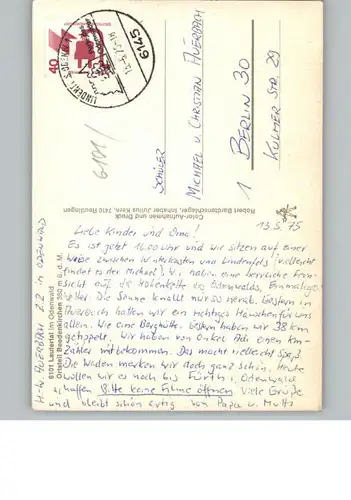 40
LINDENFELS, ODENWALD
6145
6101/
SCHÜLER
MICHAEL U. CHRISTIAN AUERBACH
1 BERLIN 30
KULMER STR. 29
Robert Bardtenschlager, Inhaber Julius Kern, 7410 Reutlingen
Color-Aufnahmen und Druck
H.-W. AUERBACH Z.Z. in ODENWALD
6101 Lautertal im Odenwald
Ortsteil Beedenkirchen 350 m ü. d. M.
13.5.75
Liebe Kinder und Oma!
Es ist jetzt 16.00 Uhr und wir sitzen auf einer
Wiese zwischen Winterkasten und Lindenfels (vielleicht
findet es der Michael). Wir haben eine herrliche Fern-
sicht auf die Höhenkette des Odenwalds. Einmaliges
Wetter. Die Sonne knallt nur so herab. Gestern in
hatten wir ein richtiges Häuschen für uns
allein. Wie eine Berghütte. Gestern haben wir 38 km
getippelt. Wir haben von Onkel Adi einen Km-
Zähler mitbekommen. Das macht vielleicht Spaß.
Die Waden merken wir doch ganz schön. Heute
wollen wir es noch bis Fürth i. Odenwald
schaffen. Bitte keine Filme öffnen. Viele Grüße
und bleibt schön artig von Papa u. Mutti